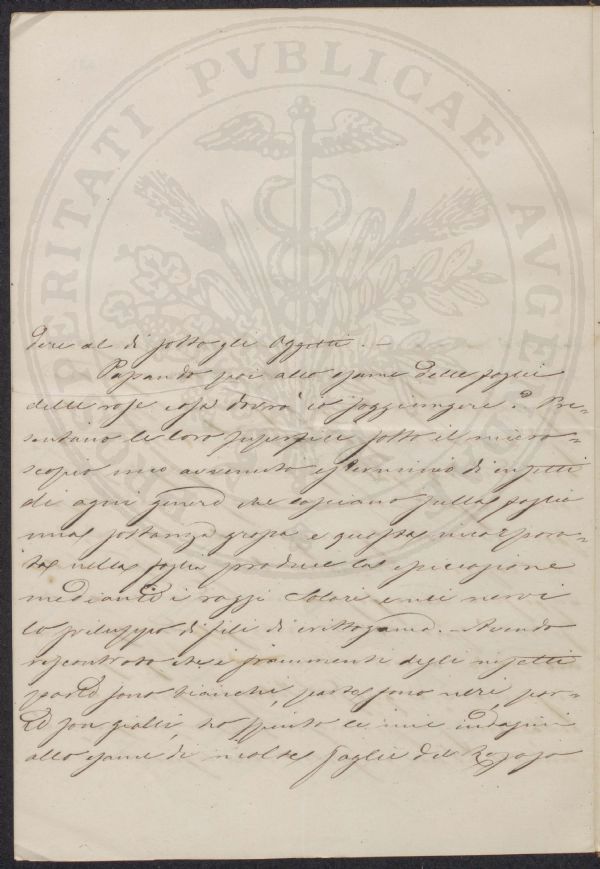 PROSPERITATI PVBLICAE AVGENDAE
dere al di sotto gli oggetti. –
Passando poi allo esame delle foglie
delle rose cosa dovrò io soggiungere? Pre-
sentano le loro superficie sotto il micro-
scopio uno avvenuto esterminio di insetti
di ogni genere che lasciano sulla foglia
una sostanza grassa e questa incorpora-
ta nella foglia produce la
mediante i raggi Solari e nei nervi
lo sviluppo di fili di crittogama. – Avendo
riscontrato che i frammenti degli insetti
parte sono bianchi, parte sono neri, par-
te son gialli, ho spinto le mie indagini
allo esame di molte foglie del Rosajo